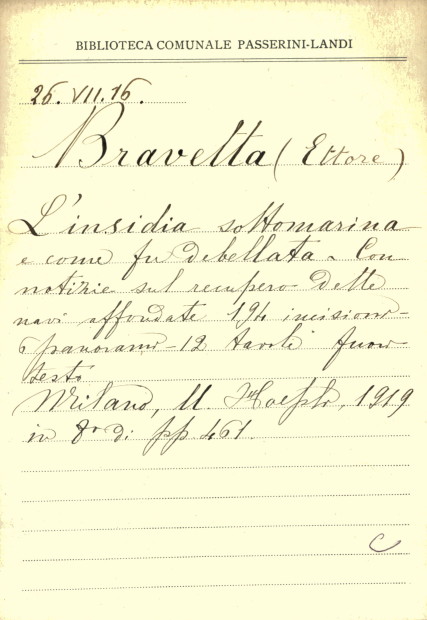 BIBLIOTECA COMUNALE PASSERINI-LANDI
26.VII.16.
Bravetta (Ettore)
L'insidia sottomarina
e come fu debellata - Con
notizie sul recupero delle
navi affondate 194 incisioni -
6 panorami - 12 tavole fuori
testo
Milano, U. Hoepli, 1919
in 8º di pp 461.
C